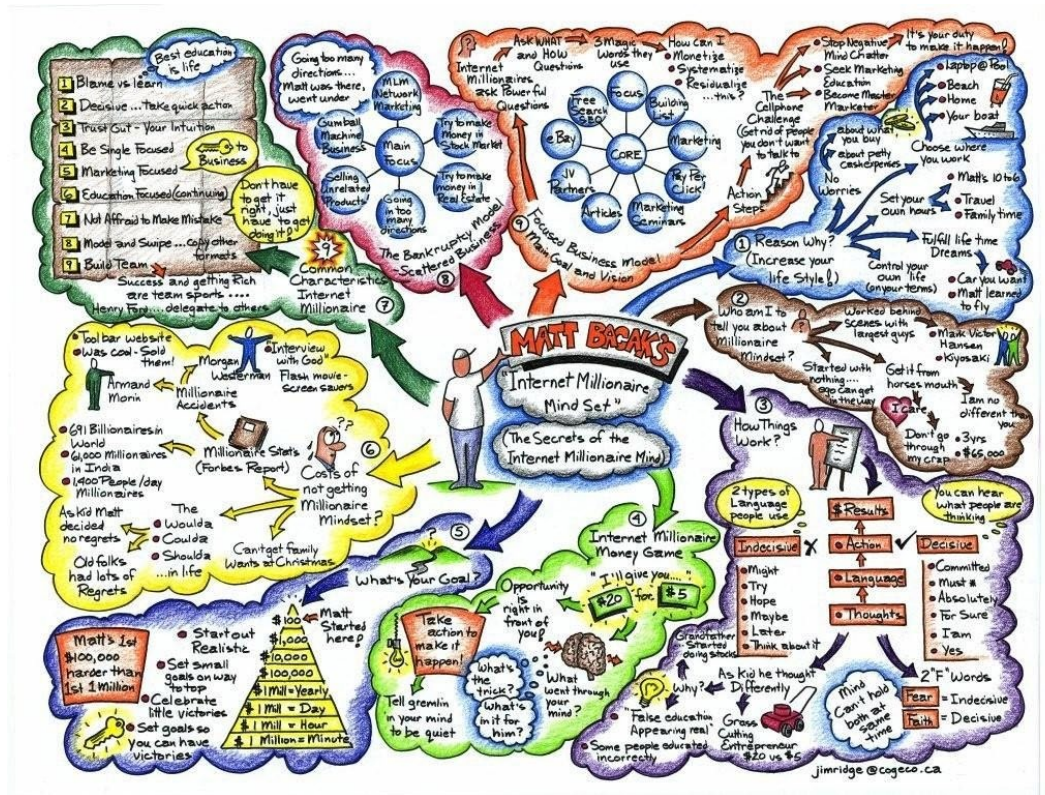 MATT BACAK'S
"Internet Millionaire
Mind Set"
(The Secrets of the
Internet Millionaire Mind)
① Reason Why?
(Increase your
life Style!)
No
Worries
about what
you buy
about petty
cash expenses
Choose where
you work
Laptop @ Pool
Beach
Home
Your boat
Set your
own hours
Matt's 10 to 6
Travel
Family time
Fulfill life time
Dreams
Car you want
Matt learned
to fly
Control your
own life
(on your terms)
②
Who am I to
tell you about
Millionaire
Mindset?
Worked behind
scenes with
largest guys
Mark Victor
Hansen
Kiyosaki
Started with
nothing....
ego can get
in the way
Get it from
horses mouth
I am no
different than
you
I care
Don't go
through
my crap
3 yrs
$65,000
③
How Things
Work?
2 types of
Language
people use
You can hear
what people are
thinking
$ Results
Action
Language
Thoughts
Indecisive X
Might
Try
Hope
Maybe
Later
Think about it
Decisive
Committed
Must
Absolutely
For Sure
I am
Yes
2 "F" Words
Fear = Indecisive
Faith = Decisive
Mind
Can't hold
both at
same
time
As Kid he thought
Differently
Grandfather
Started
doing stocks
Why?
"False education
Appearing real"
Some people educated
incorrectly
Grass
Cutting
Entrepreneur
$20 vs $5
④
Internet Millionaire
Money Game
"I'll give you...."
$20 for $5
Opportunity
is
right in
front of
you!
Take
action to
make it
happen!
What's
the
trick?
What's
in it for
him?
What
went through
your mind?
Tell gremlin
in your mind
to be quiet
⑤
?
What's Your Goal?
Matt
Started
here!
$100
$1,000
$10,000
$100,000
$1 Mill = Yearly
$1 Mill = Day
$1 Mill = Hour
$1 Million = Minute
Matt's 1st
$100,000
harder than
1st 1 Million
Start out
Realistic
Set small
goals on way
to top
Celebrate
little victories
Set goals so
you can have
victories
⑥
??
Costs of
not getting
Millionaire
Mindset?
Millionaire Stats
(Forbes Report)
691 Billionaires in
World
61,000 Millionaires
in India
1,400 People/day
Millionaires
Millionaire
Accidents
Tool bar website
Was cool - Sold
them!
Armand
Morin
Morgan
Westerman
"Interview
with God"
Flash movie -
screen savers
The
Woulda
Coulda
Shoulda
...in life
As kid Matt
decided
no regrets
Old folks
had lots of
Regrets
Can't get family
Wants at Christmas
⑦
9
Common
Characteristics
Internet
Millionaire
Best education
is life
1 Blame vs learn
2 Decisive ... Take quick action
3 Trust Gut - Your Intuition
4 Be Single Focused
5 Marketing Focused
6 Education Focused (continuing)
7 Not Affraid to Make Mistake
8 Model and Swipe ... copy other
formats
9 Build Team
to
Business
Don't have
to get it
right, just
have to get
doing it!
Success and getting Rich
are team sports ....
Henry Ford....delegate to others
⑧
The Bankruptcy Model
- Scattered Business
Going too many
directions...
Matt was there,
went under
Main
Focus
MLM
Network
Marketing
Try to make
money in
Stock Market
Try to make
money in
Real Estate
Going
in too
many
directions
Selling
Unrelated
Products
Gumball
Machine
Business
⑨
Focused Business Model
Main Goal and Vision
Internet
Millionaires
ask Powerful
Questions
Ask WHAT
and HOW
Questions
3 Magic
Words they
use
How can I
Monetize
Systematize
Residualize
...this?
CORE
Focus
Building
List
Marketing
Pay Per
Click
Marketing
Seminars
Articles
JV
Partners
eBay
Free
Search
SEO
Action
Steps
The
Cellphone
Challenge
(Get rid of people
you don't want
to talk to)
Stop Negative
Mind Chatter
Seek Marketing
Education
Become Master
Marketer
It's your duty
to make it happen!
jimridge@cogeco.ca